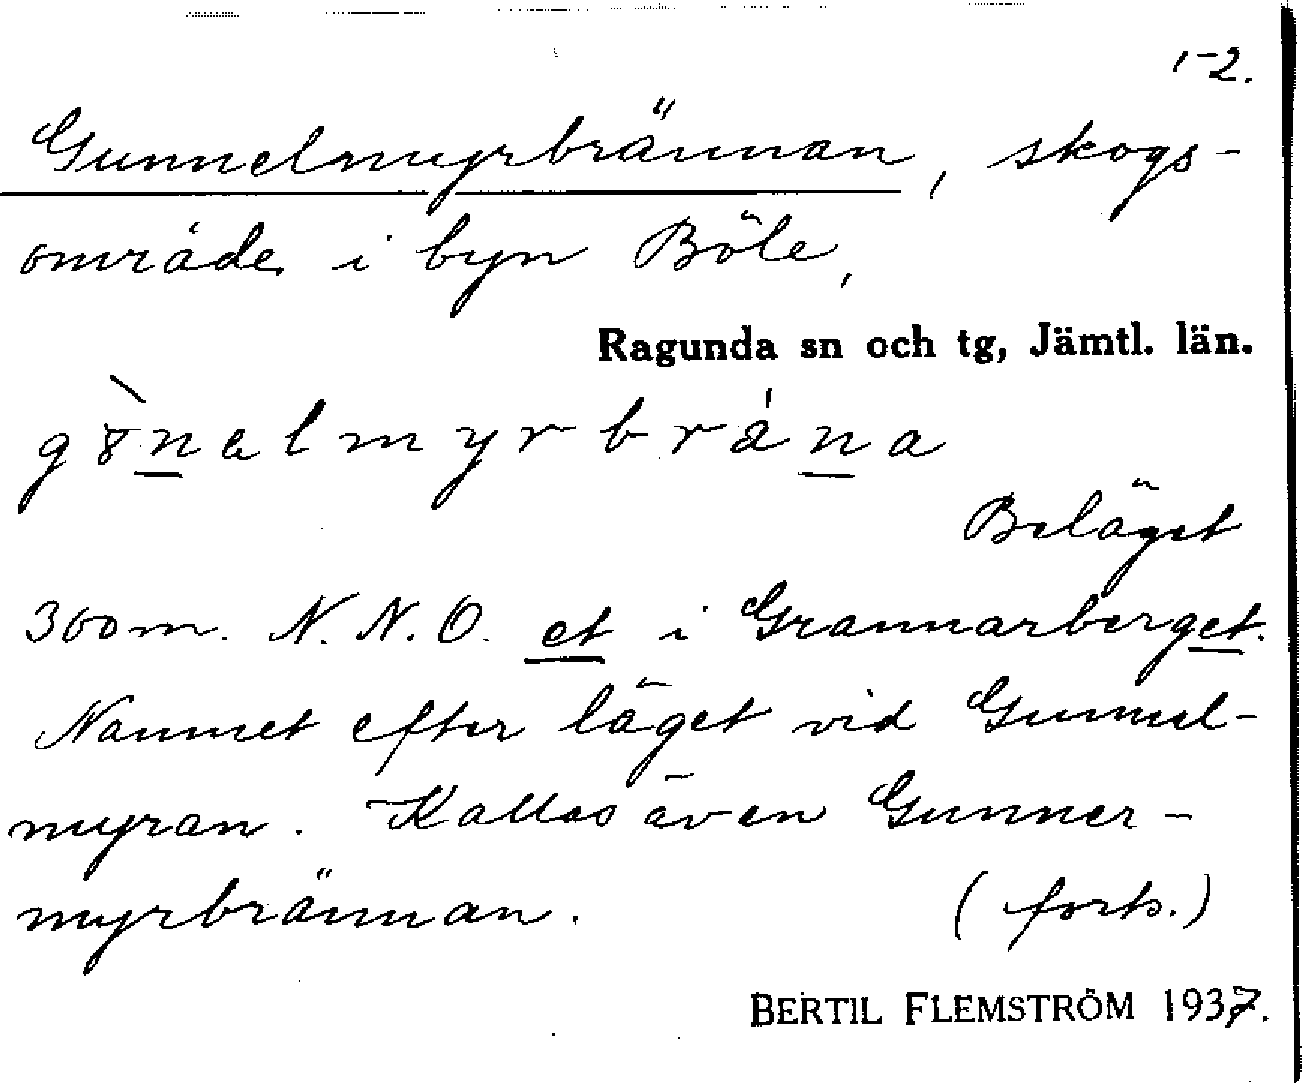 1-2.
Gunnelmyrbrännan, skogs-
område i byn Böle,
Ragunda sn och tg, Jämtl. län.
Beläget
300 m. N.N.O. et i Grannarberget.
Namnet efter läget vid Gunnel-
myran. Kallas även Gunner-
myrbrännan. (forts.)
BERTIL FLEMSTRÖM 1937.